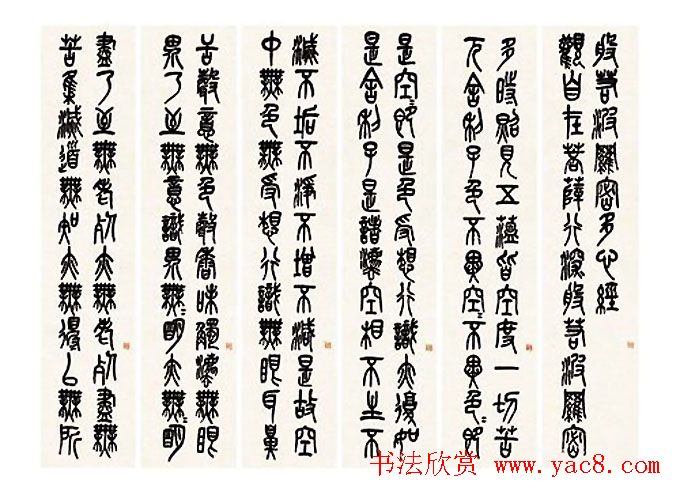 般若波羅密多心經
觀自在菩薩行深般若波羅密
多時照見五蘊皆空度一切苦
厄舍利子色不異空〻不異色〻即
是空〻即是色受想行識亦復如
是舍利子是諸法空相不生不
滅不垢不淨不增不減是故空
中無色無受想行識無眼耳鼻
舌聲意無色聲香味觸法無眼
界乃至無意識界無〻明亦無〻明
盡乃至無老死亦無老死盡無
苦集滅道無知亦無得以無所
书法欣赏 www.yac8.com